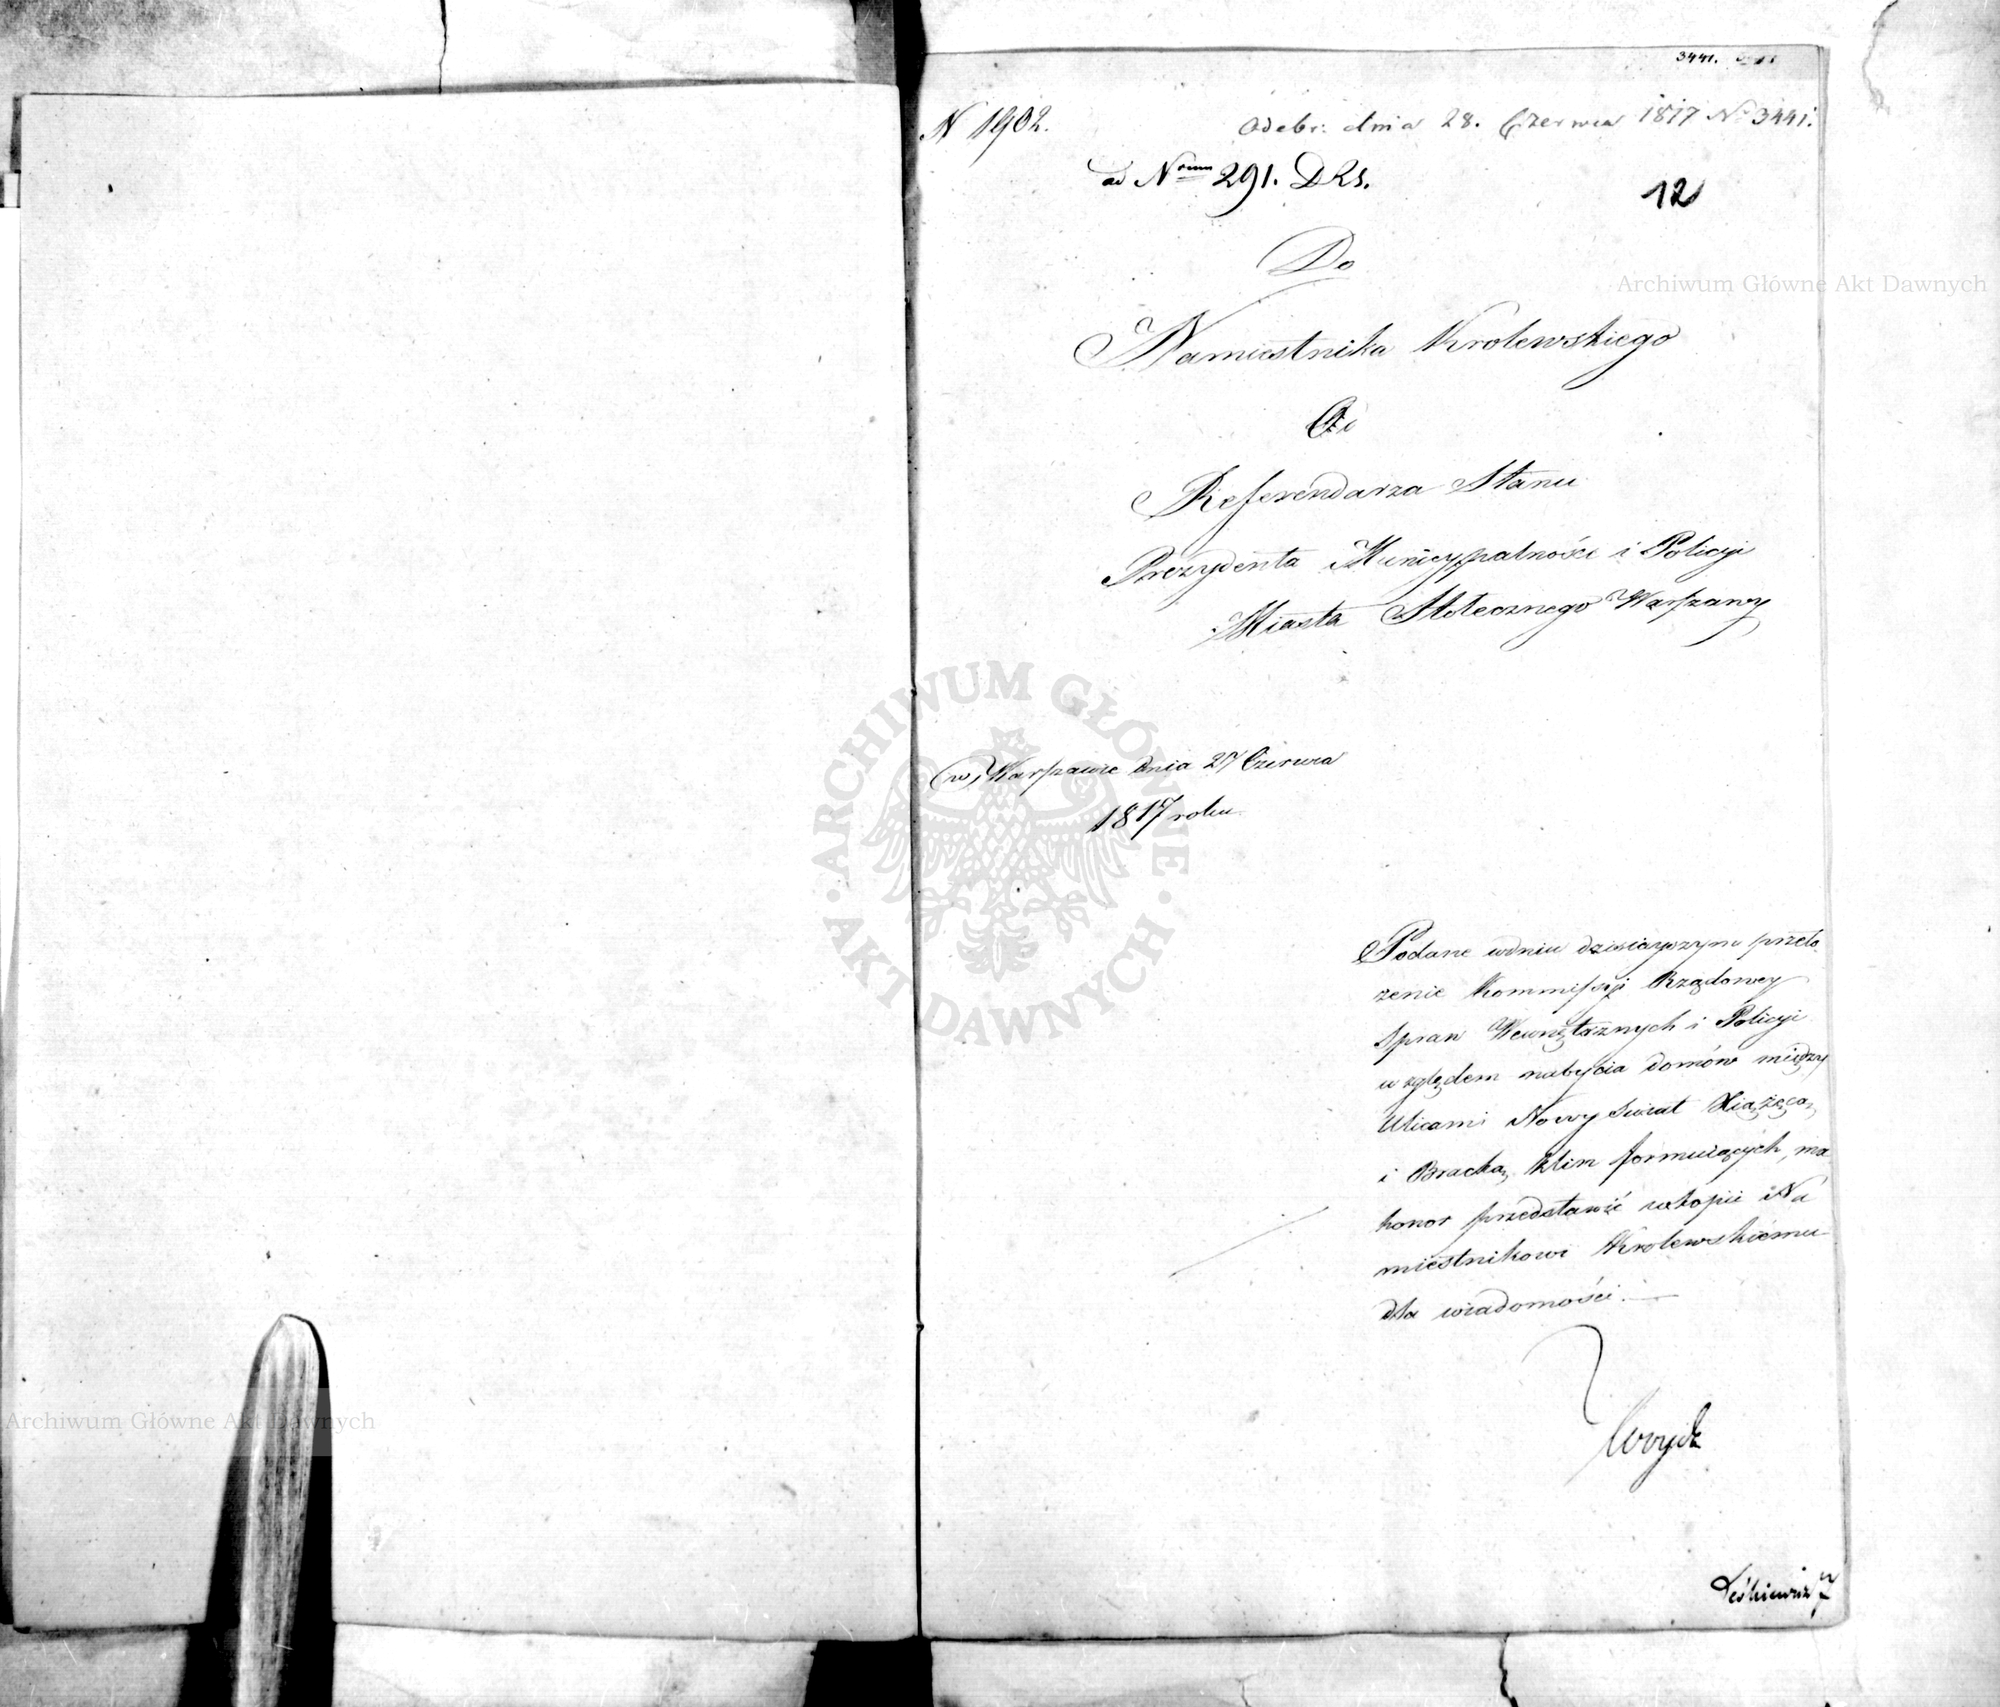 3441.
N 1902.
Odebr: dnia 28. Czerwca 1817 No 3441.
ad Nrum 291. DRs.
12
Do
Archiwum Główne Akt Dawnych
Namiestnika Krolewskiego
Od
Referendarza Stanu
Prezydenta Municypalności i Policyi
Miasta Stołecznego Warszawy
ARCHIWUM GŁÓWNE AKT DAWNYCH
w Warszawie dnia 27 Czerwca
1817 roku
Podane wdniu dzisieyszym przeło-
żenie Kommissyi Rządowey
Spraw Wewnętrznych i Policyi
względem nabycia domów między
Ulicami Nowy Swiat Xiążęcą,
i Bracką, klin formuiących, ma
honor przedstawić wkopii Na
miestnikowi Krolewskiemu
dla wiadomości.
Woyda
Archiwum Główne Akt Dawnych
Leśkiewicz